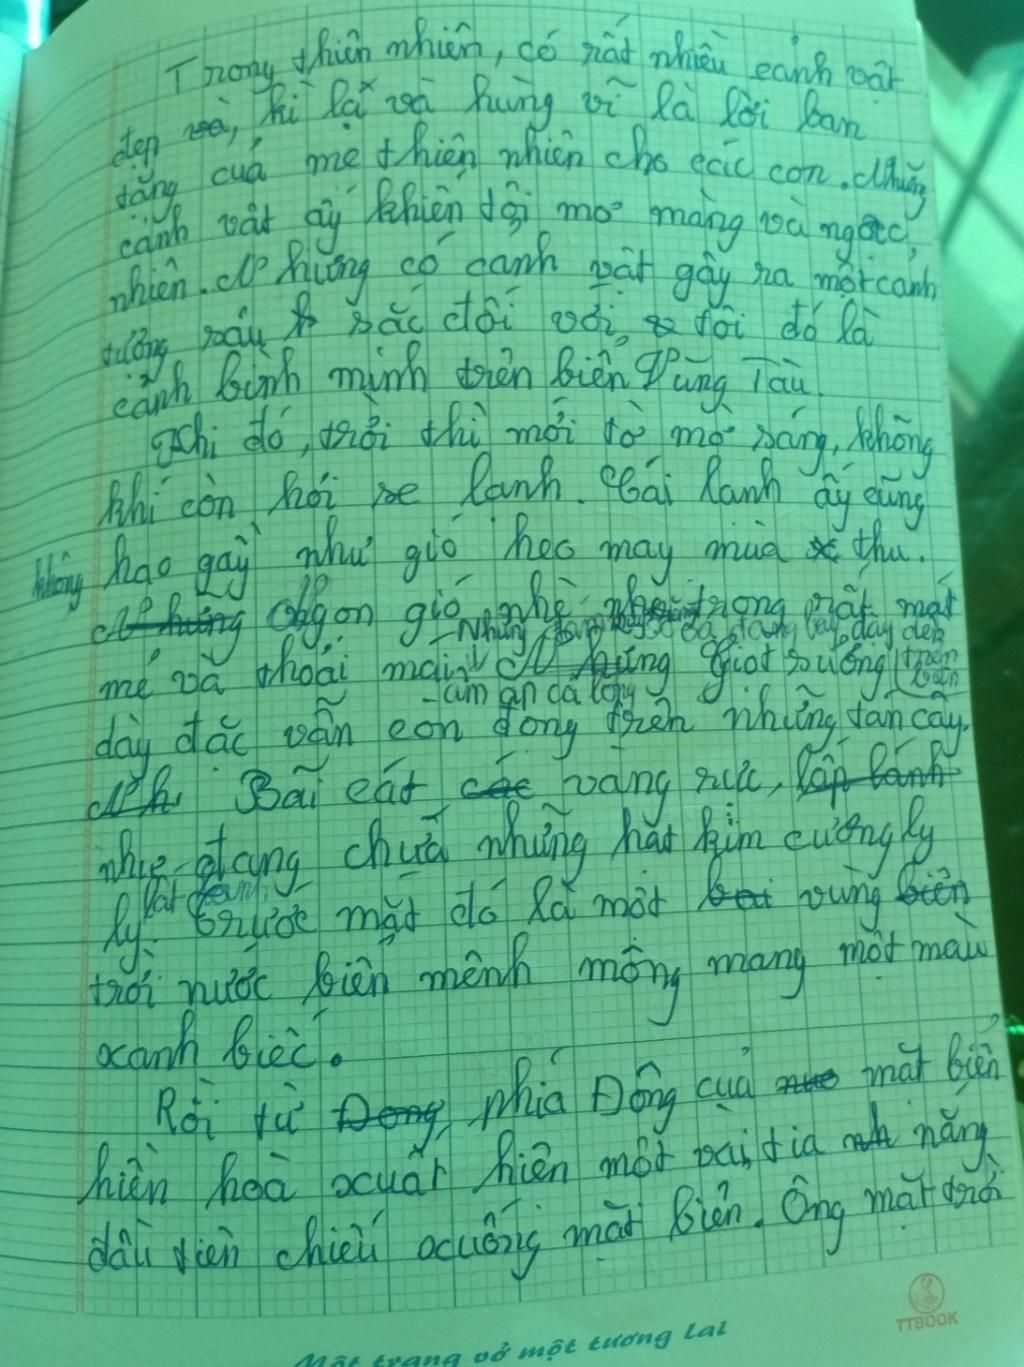 Trong thiên nhiên, có rất nhiều cảnh vật
đẹp và, kì lạ và hùng vĩ là lời ban
tặng của mẹ thiên nhiên cho các con. Những
cảnh vật ấy khiến tôi mơ màng và ngạc
nhiên. Nhưng có cảnh vật gây ra một cảnh
tượng sâu sắc đối với tôi đó là
cảnh bình minh trên biển Vũng Tàu.
Khi đó, trời thì mới tờ mờ sáng, không
khí còn hơi se lạnh. Cái lạnh ấy cũng
không hao gầy như gió heo may mùa thu.
Những Ngọn gió nhè nhẹ trong rất mát
mẻ và thoải mái. Những giọt sương trên
dày đặc vẫn còn đọng trên những tán cây.
Nh Bãi cát các vàng rực, lấp lánh
như đang chứa những hạt kim cương ly
ly. trước mặt đó là một vùng biển
trời nước biển mênh mông mang một màu
xanh biếc.
Rồi từ Đông, phía Đông của mặt biển
hiền hoà xuất hiện một vài tia nh nắng
đầu tiên chiếu xuống mặt biển. Ông mặt trời
TTBOOK
Một trang vở một tương lai